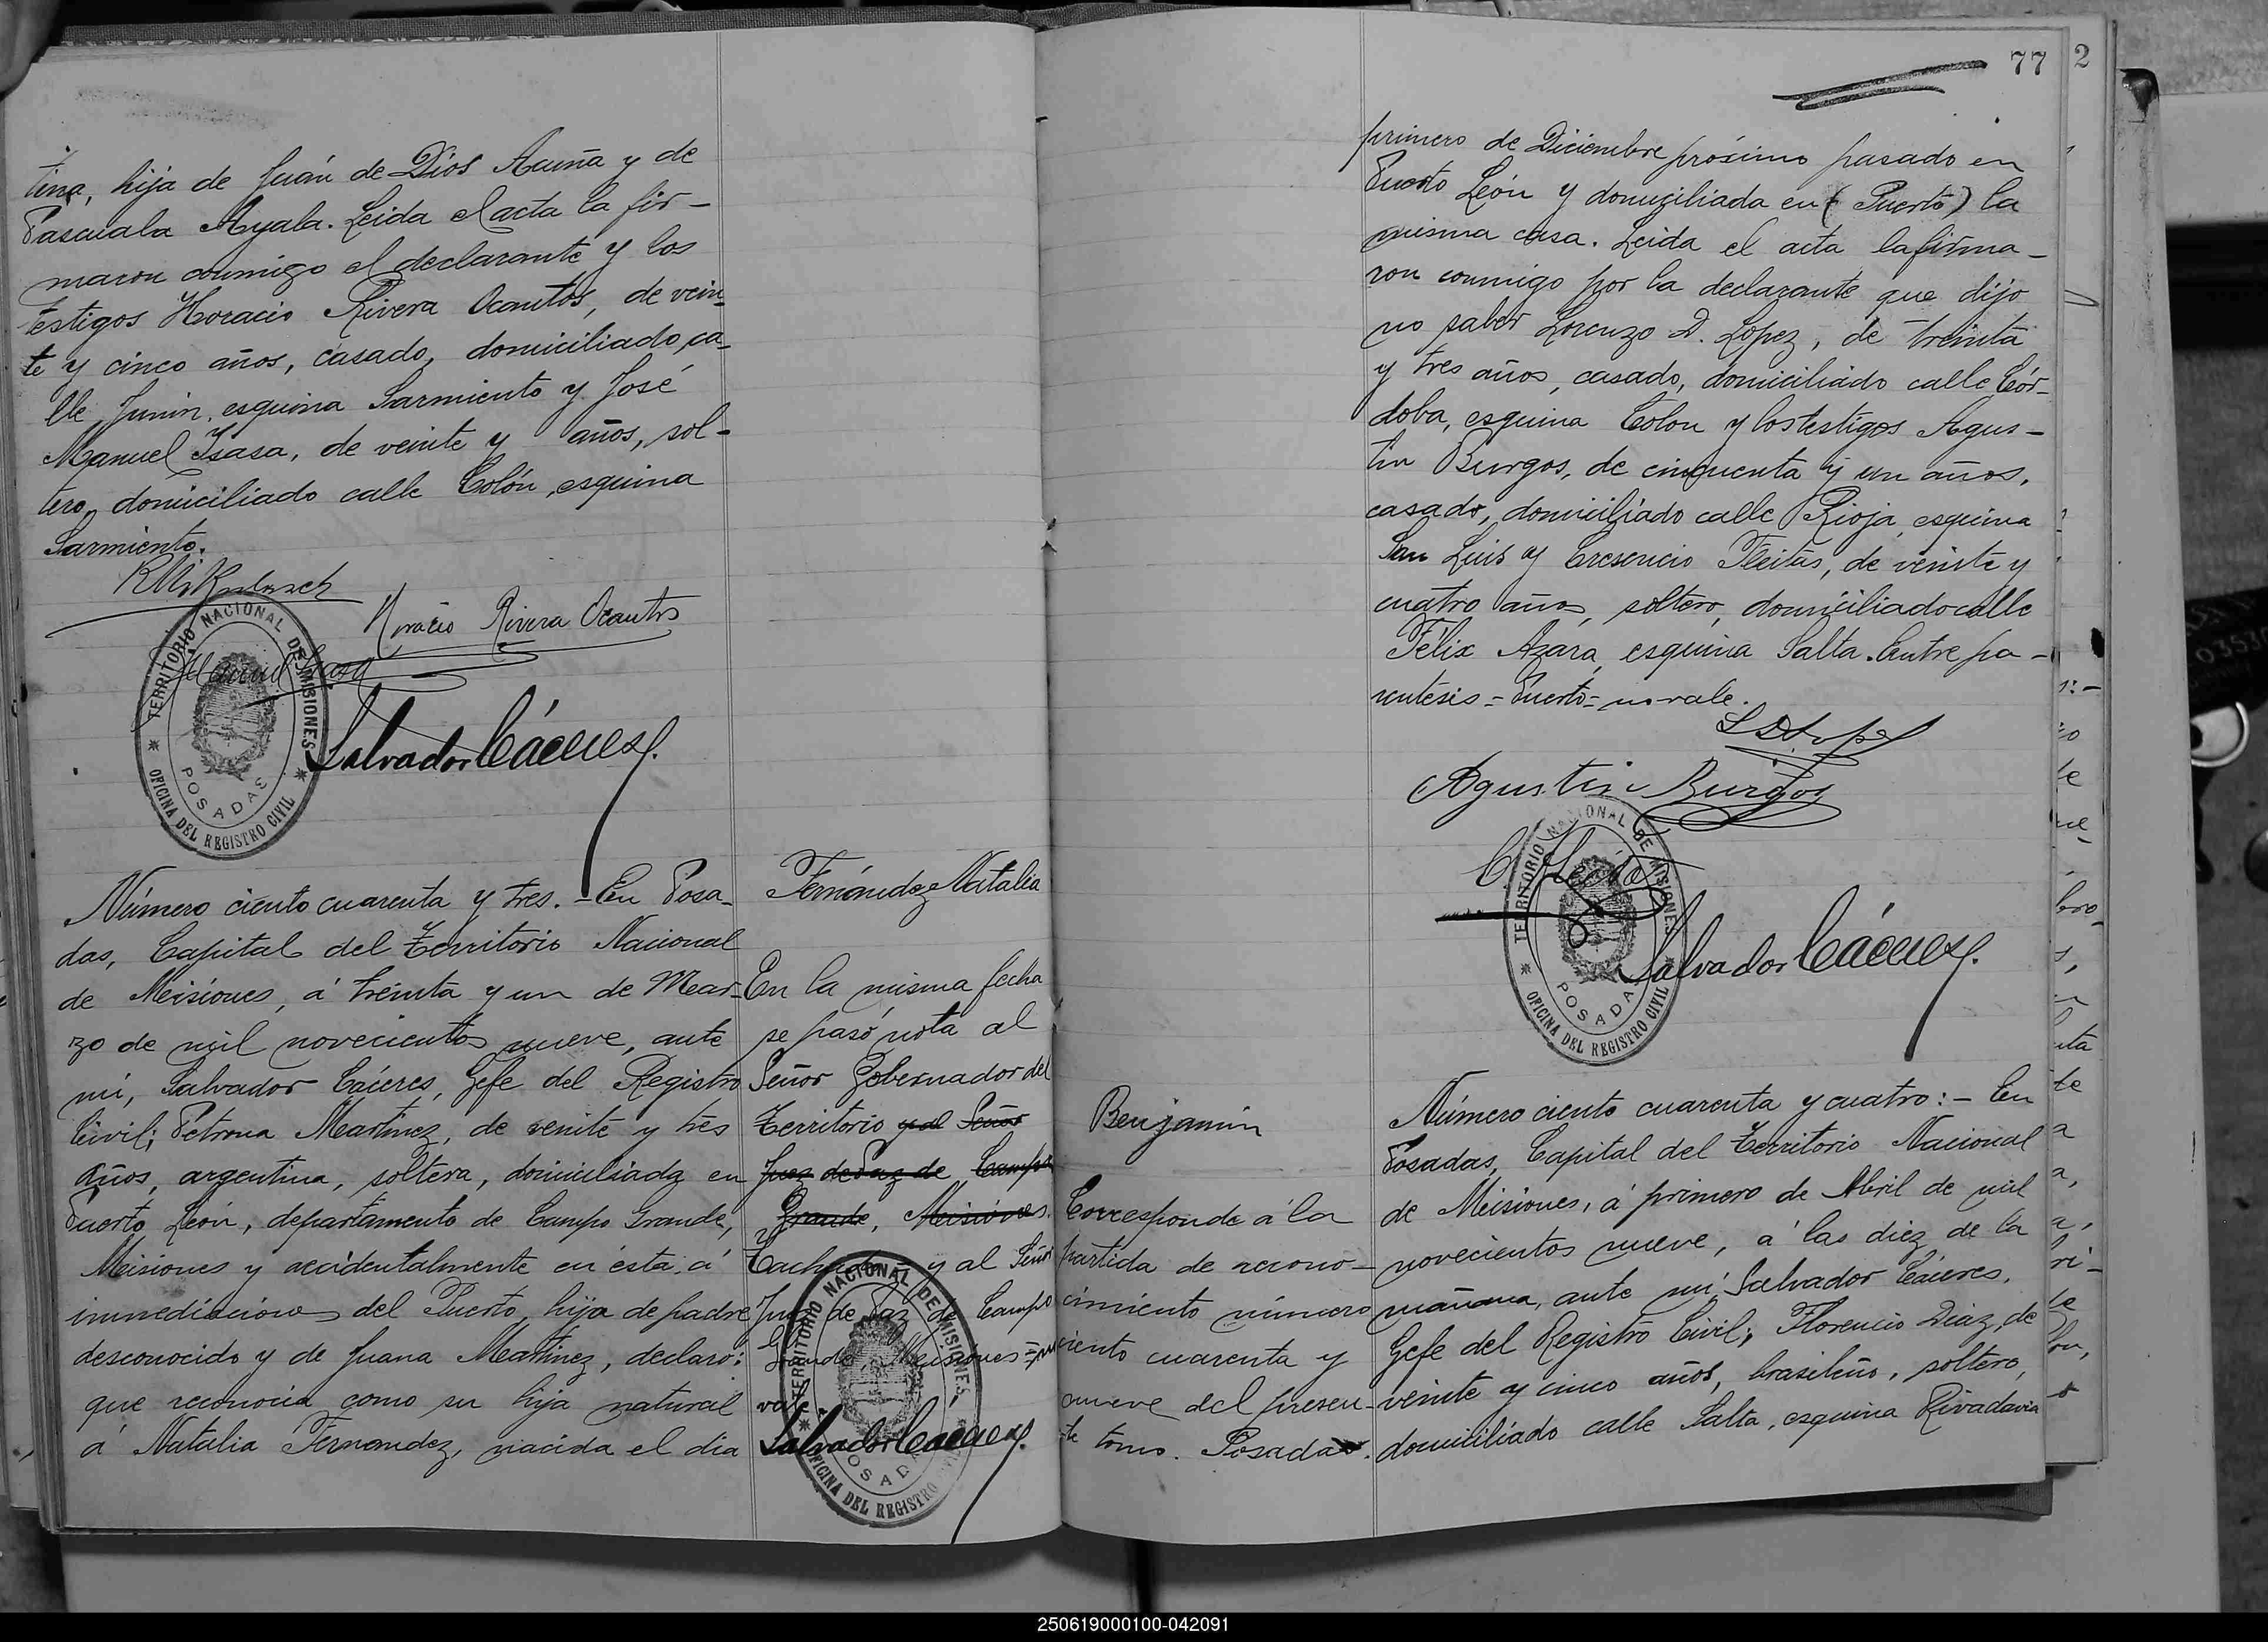 tina, hija de Juán de Dios Acuña y de
Pascuala Ayala. Leida el acta la fir-
maron conmigo el declarante y los
testigos Horacio Rivera Ocantos, de vein
te y cinco años, casado, domiciliado, ca-
lle Junin, esquina Sarmiento y José
Manuel Isasa, de veinte y años, sol-
tero, domiciliado calle Colón, esquina
Sarmiento.
Horacio Rivera Ocantos
Manuel Isasa
TERRITORIO NACIONAL DE MISIONES
POSADAS
OFICINA DEL REGISTRO CIVIL
Salvador Cáceres
Número ciento cuarenta y tres. - En Posa-
das, Capital del Territorio Nacional
de Misiones, á treinta y un de Mar-
zo de mil novecientos nueve, ante
mi, Salvador Cáceres, Gefe del Registro
Civil; Petrona Martinez, de veinte y tres
años, argentina, soltera, domiciliada en
Puerto León, departamento de Campo Grande,
Misiones y accidentalmente en ésta, á
inmediciones del Puerto, hija de padre
desconocido y de Juana Martinez, declaró:
que reconocía como su hija natural
á Natalia Fernandez, nacida el dia
Fernández Natalia
En la misma fecha
se pasó nota al
Señor Gobernador del
Territorio y al Señor
Juez de Paz de Campo
Grande, Misiones.
y al Señor
Juez de Paz de Campo
Grande Misiones =
vale.
Salvador Cáceres
TERRITORIO NACIONAL DE MISIONES
POSADAS
OFICINA DEL REGISTRO CIVIL
77
2
primero de Diciembre prósimo pasado en
Puerto León y domiciliada en ( Puerto ) la
misma casa. Leida el acta la firma-
ron conmigo por la declarante que dijo
no saber Lorenzo D. Lopez, de treinta
y tres años, casado, domiciliado calle Cór-
doba, esquina Colon y los testigos Agus-
tin Burgos, de cincuenta y un años,
casado, domiciliado calle Rioja, esquina
San Luis y Cresencio Fleitas, de veinte y
cuatro años, soltero, domiciliado calle
Félix Azara, esquina Salta. Entre pa-
rentesis = Puerto = no vale.
L D Lopez
Agustin Burgos
C Fleitas
TERRITORIO NACIONAL DE MISIONES
POSADAS
OFICINA DEL REGISTRO CIVIL
Salvador Cáceres
Benjamin
Corresponde á la
partida de recono-
cimiento número
ciento cuarenta y
nueve del presen-
te tomo. Posadas.
Número ciento cuarenta y cuatro: - En
Posadas, Capital del Territorio Nacional
de Misiones, á primero de Abril de mil
novecientos nueve, á las diez de la
mañana, ante mi, Salvador Cáceres,
Gefe del Registro Civil; Florencio Diaz, de
veinte y cinco años, brasileño, soltero,
domiciliado calle Salta, esquina Rivadavia
250619000100-042091